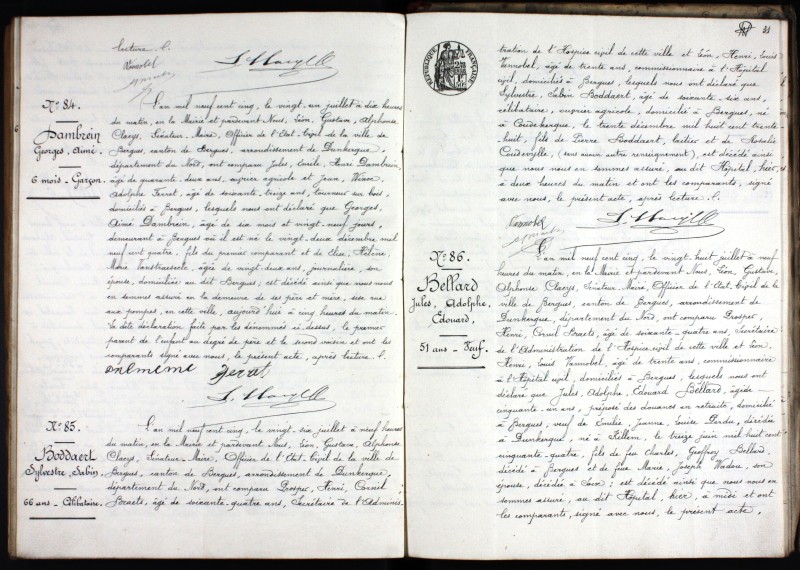 lecture ./.
Vannobel
N° 84.
Dambrein
Georges, Aimé.
6 mois - Garçon.
L'an mil neuf cent cinq, le vingt-un juillet à dix heures
du matin, en la Mairie et pardevant Nous, Léon, Gustave, Alphonse
Claeys, Sénateur-Maire, Officier de l'Etat-Civil de la ville de
Bergues, canton de Bergues, arrondissement de Dunkerque,
département du Nord, ont comparu Jules, Emile, Henri Dambrein,
âgé de quarante-deux ans, ouvrier agricole et Jean, Winoc
Adolphe Ferret, âgé de soixante-treize ans, tourneur sur bois,
domiciliés à Bergues, lesquels nous ont déclaré que Georges,
Aimé Dambrein, âgé de six mois et vingt-neuf jours,
demeurant à Bergues où il est né le vingt-deux décembre mil
neuf cent quatre, fils du premier comparant et de Elise, Hélène,
Marie Vanstraeseele, âgée de vingt-deux ans, journalière, son
épouse, domiciliés au dit Bergues; est décédé ainsi que nous nous
en sommes assuré en la demeure de ses père et mère, sise rue
aux pompes, en cette ville, aujourd'hui à cinq heures du matin.
La dite déclaration faite par les dénommés ci-dessus, le premier
parent de l'enfant au degré de père et le second voisin et ont les
comparants signé avec nous, le présent acte, après lecture ./.
N° 85.
Boddaert
Sylvestre, Sabin
66 ans - Célibataire.
L'an mil neuf cent cinq, le vingt-six juillet à neuf heures
du matin, en la Mairie et pardevant Nous, Léon, Gustave, Alphonse
Claeys, Sénateur-Maire, Officier de l'Etat-Civil de la ville de
Bergues, canton de Bergues, arrondissement de Dunkerque,
département du Nord, ont comparu Prosper, Henri, Cornil
Braets, âgé de soixante-quatre ans, Secrétaire de l'Adminis-
31
RÉPUBLIQUE FRANÇAISE
tration de l'Hospice civil de cette ville et Léon, Henri, Louis
Vannobel, âgé de trente ans, commissionnaire à l'Hôpital
civil, domiciliés à Bergues, lesquels nous ont déclaré que
Sylvestre, Sabin Boddaert, âgé de soixante-six ans,
célibataire, ouvrier agricole, domicilié à Bergues, né
à Coudekerque, le trente décembre mil huit cent trente-
huit, fils de Pierre Boddaert, laitier et de Rosalie
Coudeville, (sans aucun autre renseignement), est décédé ainsi
que nous nous en sommes assuré, au dit Hôpital, hier,
à deux heures du matin et ont les comparants, signé
avec nous, le présent acte, après lecture ./.
Vannobel
N° 86.
Bellard
Jules, Adolphe,
Edouard,
51 ans - Veuf.
L'an mil neuf cent cinq, le vingt-huit juillet à neuf
heures du matin, en la Mairie et pardevant Nous, Léon, Gustave,
Alphonse Claeys, Sénateur-Maire, Officier de l'Etat-Civil de la
ville de Bergues, canton de Bergues, arrondissement de
Dunkerque, département du Nord, ont comparu Prosper,
Henri, Cornil Braets, âgé de soixante-quatre ans, Secrétaire
de l'Administration de l'Hospice civil de cette ville et Léon,
Henri, Louis Vannobel, âgé de trente ans, commissionnaire
à l'Hôpital civil, domiciliés à Bergues, lesquels nous ont
déclaré que Jules, Adolphe, Edouard Bellard, âgé de
cinquante-un ans, préposé des douanes en retraite, domicilié
à Bergues, veuf de Emilie, Jeanne, Louise Dardu, décédée
à Dunkerque, né à Killem, le treize juin mil huit cent
cinquante-quatre, fils de feu Charles, Geoffroy Bellard,
décédé à Bergues et de feue Marie, Joseph Wadou, son
épouse, décédée à ; est décédé ainsi que nous nous en
sommes assuré, au dit Hôpital, hier, à midi et ont
les comparants, signé avec nous, le présent acte,